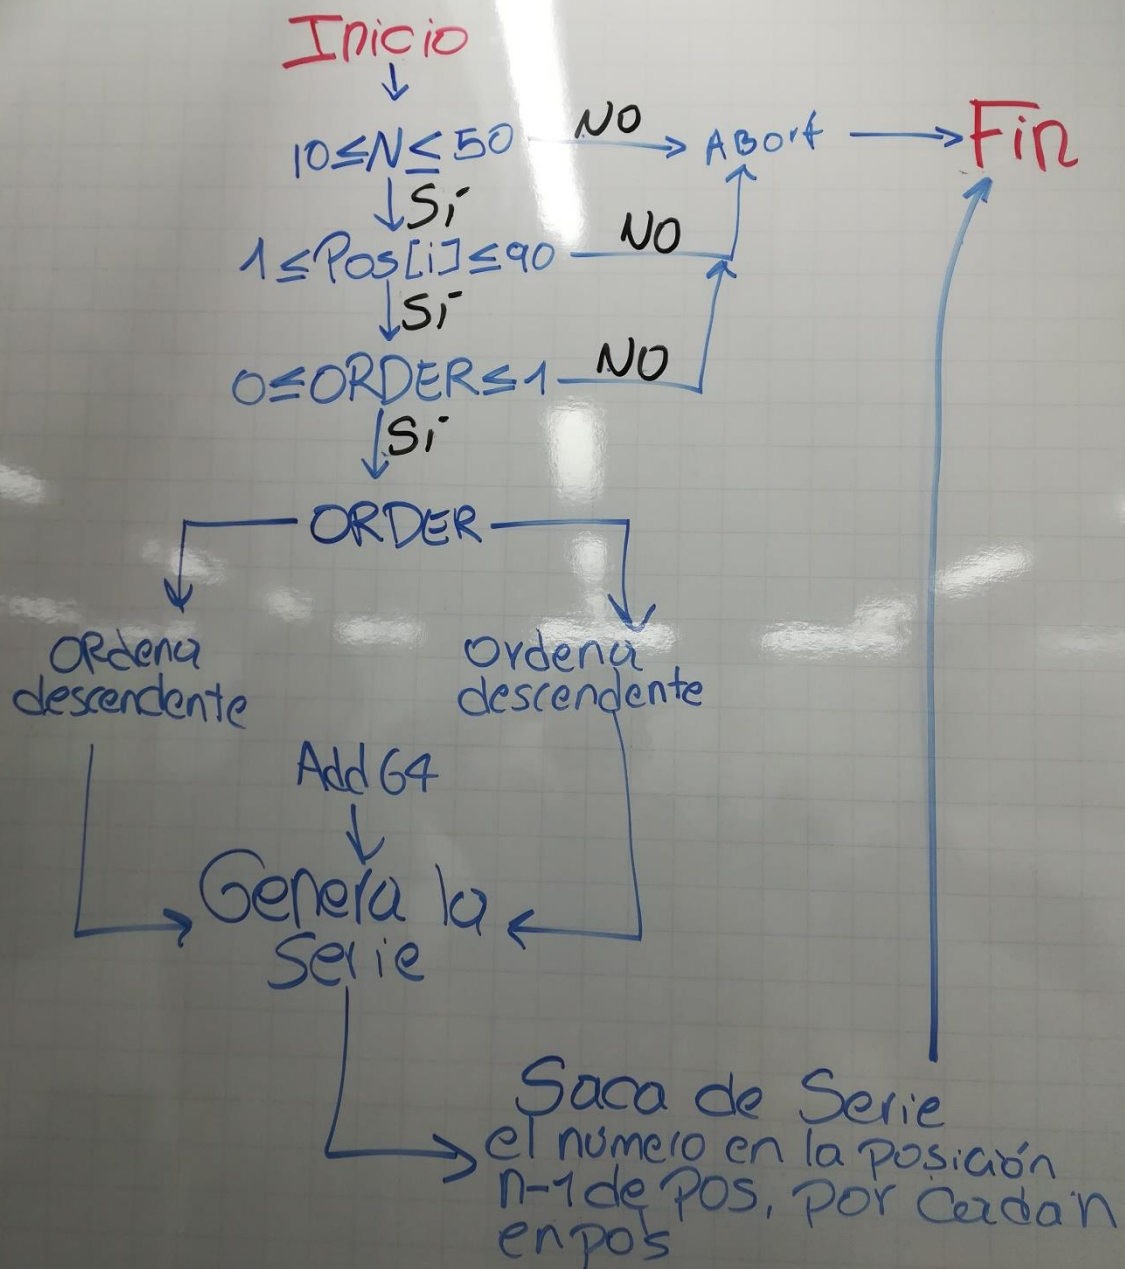 Inicio
10≤N≤50 NO ABort Fin
Sí
1≤Pos[i]≤90 NO
Sí
0≤ORDER≤1 NO
Sí
ORDER
ORdena
descendente
Ordena
descendente
Add 64
Genera la
Serie
Saca de Serie
el número en la posición
n-1 de POS, por cada n
en pos